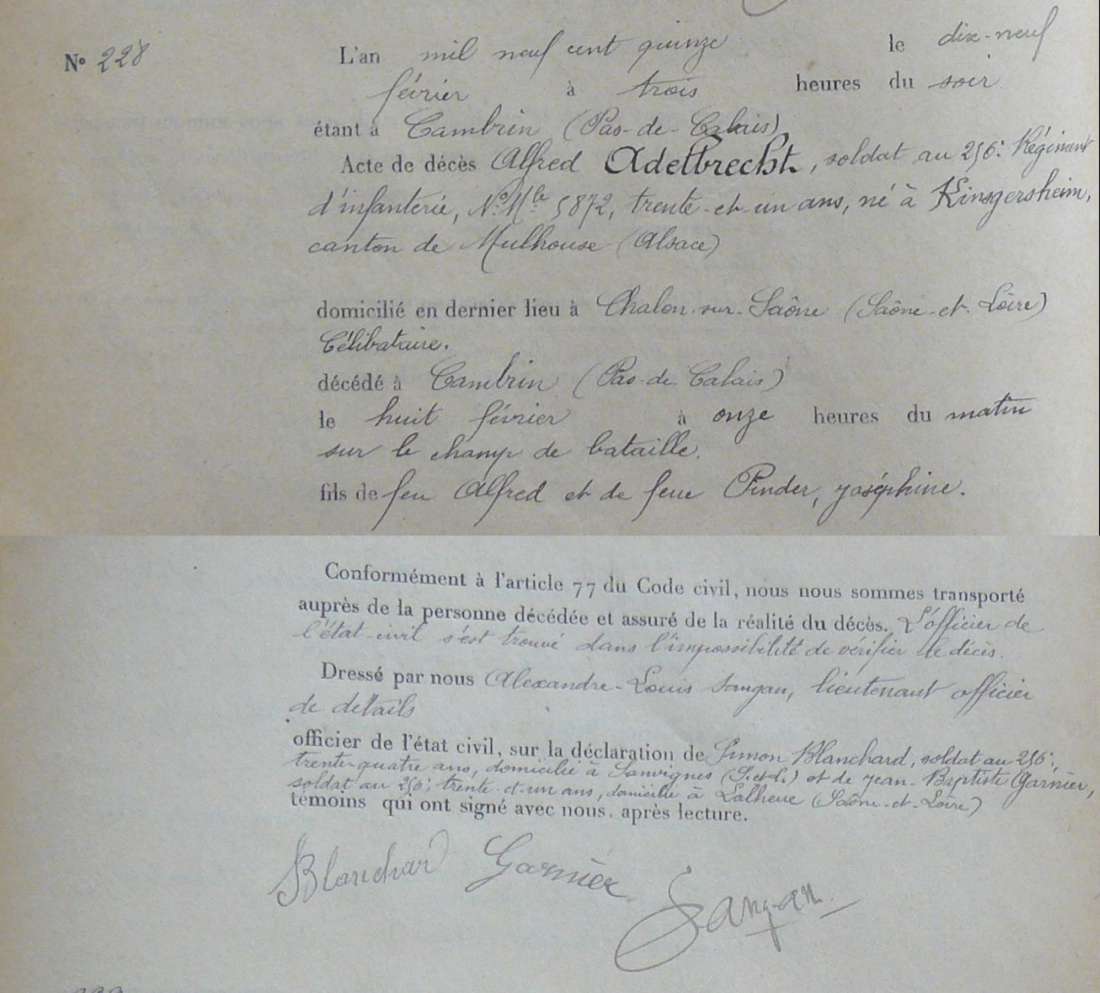 N° 228
L'an mil neuf cent quinze le dix-neuf
février à trois heures du soir
étant à Cambrin (Pas-de-Calais)
Acte de décès Alfred Adelbrecht, soldat au 256e Régiment
d'infanterie, N° Mle 5872, trente-et-un ans, né à Kinsgersheim,
canton de Mulhouse (Alsace)
domicilié en dernier lieu à Chalon-sur-Saône (Saône-et-Loire)
Célibataire.
décédé à Cambrin (Pas-de-Calais)
le huit février à onze heures du matin
sur le champ de bataille.
fils de feu Alfred et de feue Pinder, joséphine.
Conformément à l'article 77 du Code civil, nous nous sommes transporté
auprès de la personne décédée et assuré de la réalité du décès. L'officier de
l'état-civil s'est trouvé dans l'impossibilité de vérifier le décès.
Dressé par nous Alexandre-Louis Sangan, lieutenant officier
de détails
officier de l'état civil, sur la déclaration de Simon Blanchard, soldat au 256e,
trente-quatre ans, domicilié à Sanvignes (S.et-L.) et de jean-Baptiste Garnier,
soldat au 256e, trente-et-un ans, domicilié à Lalheue (Saône-et-Loire)
témoins qui ont signé avec nous, après lecture.
Blanchard Garnier
Sangan